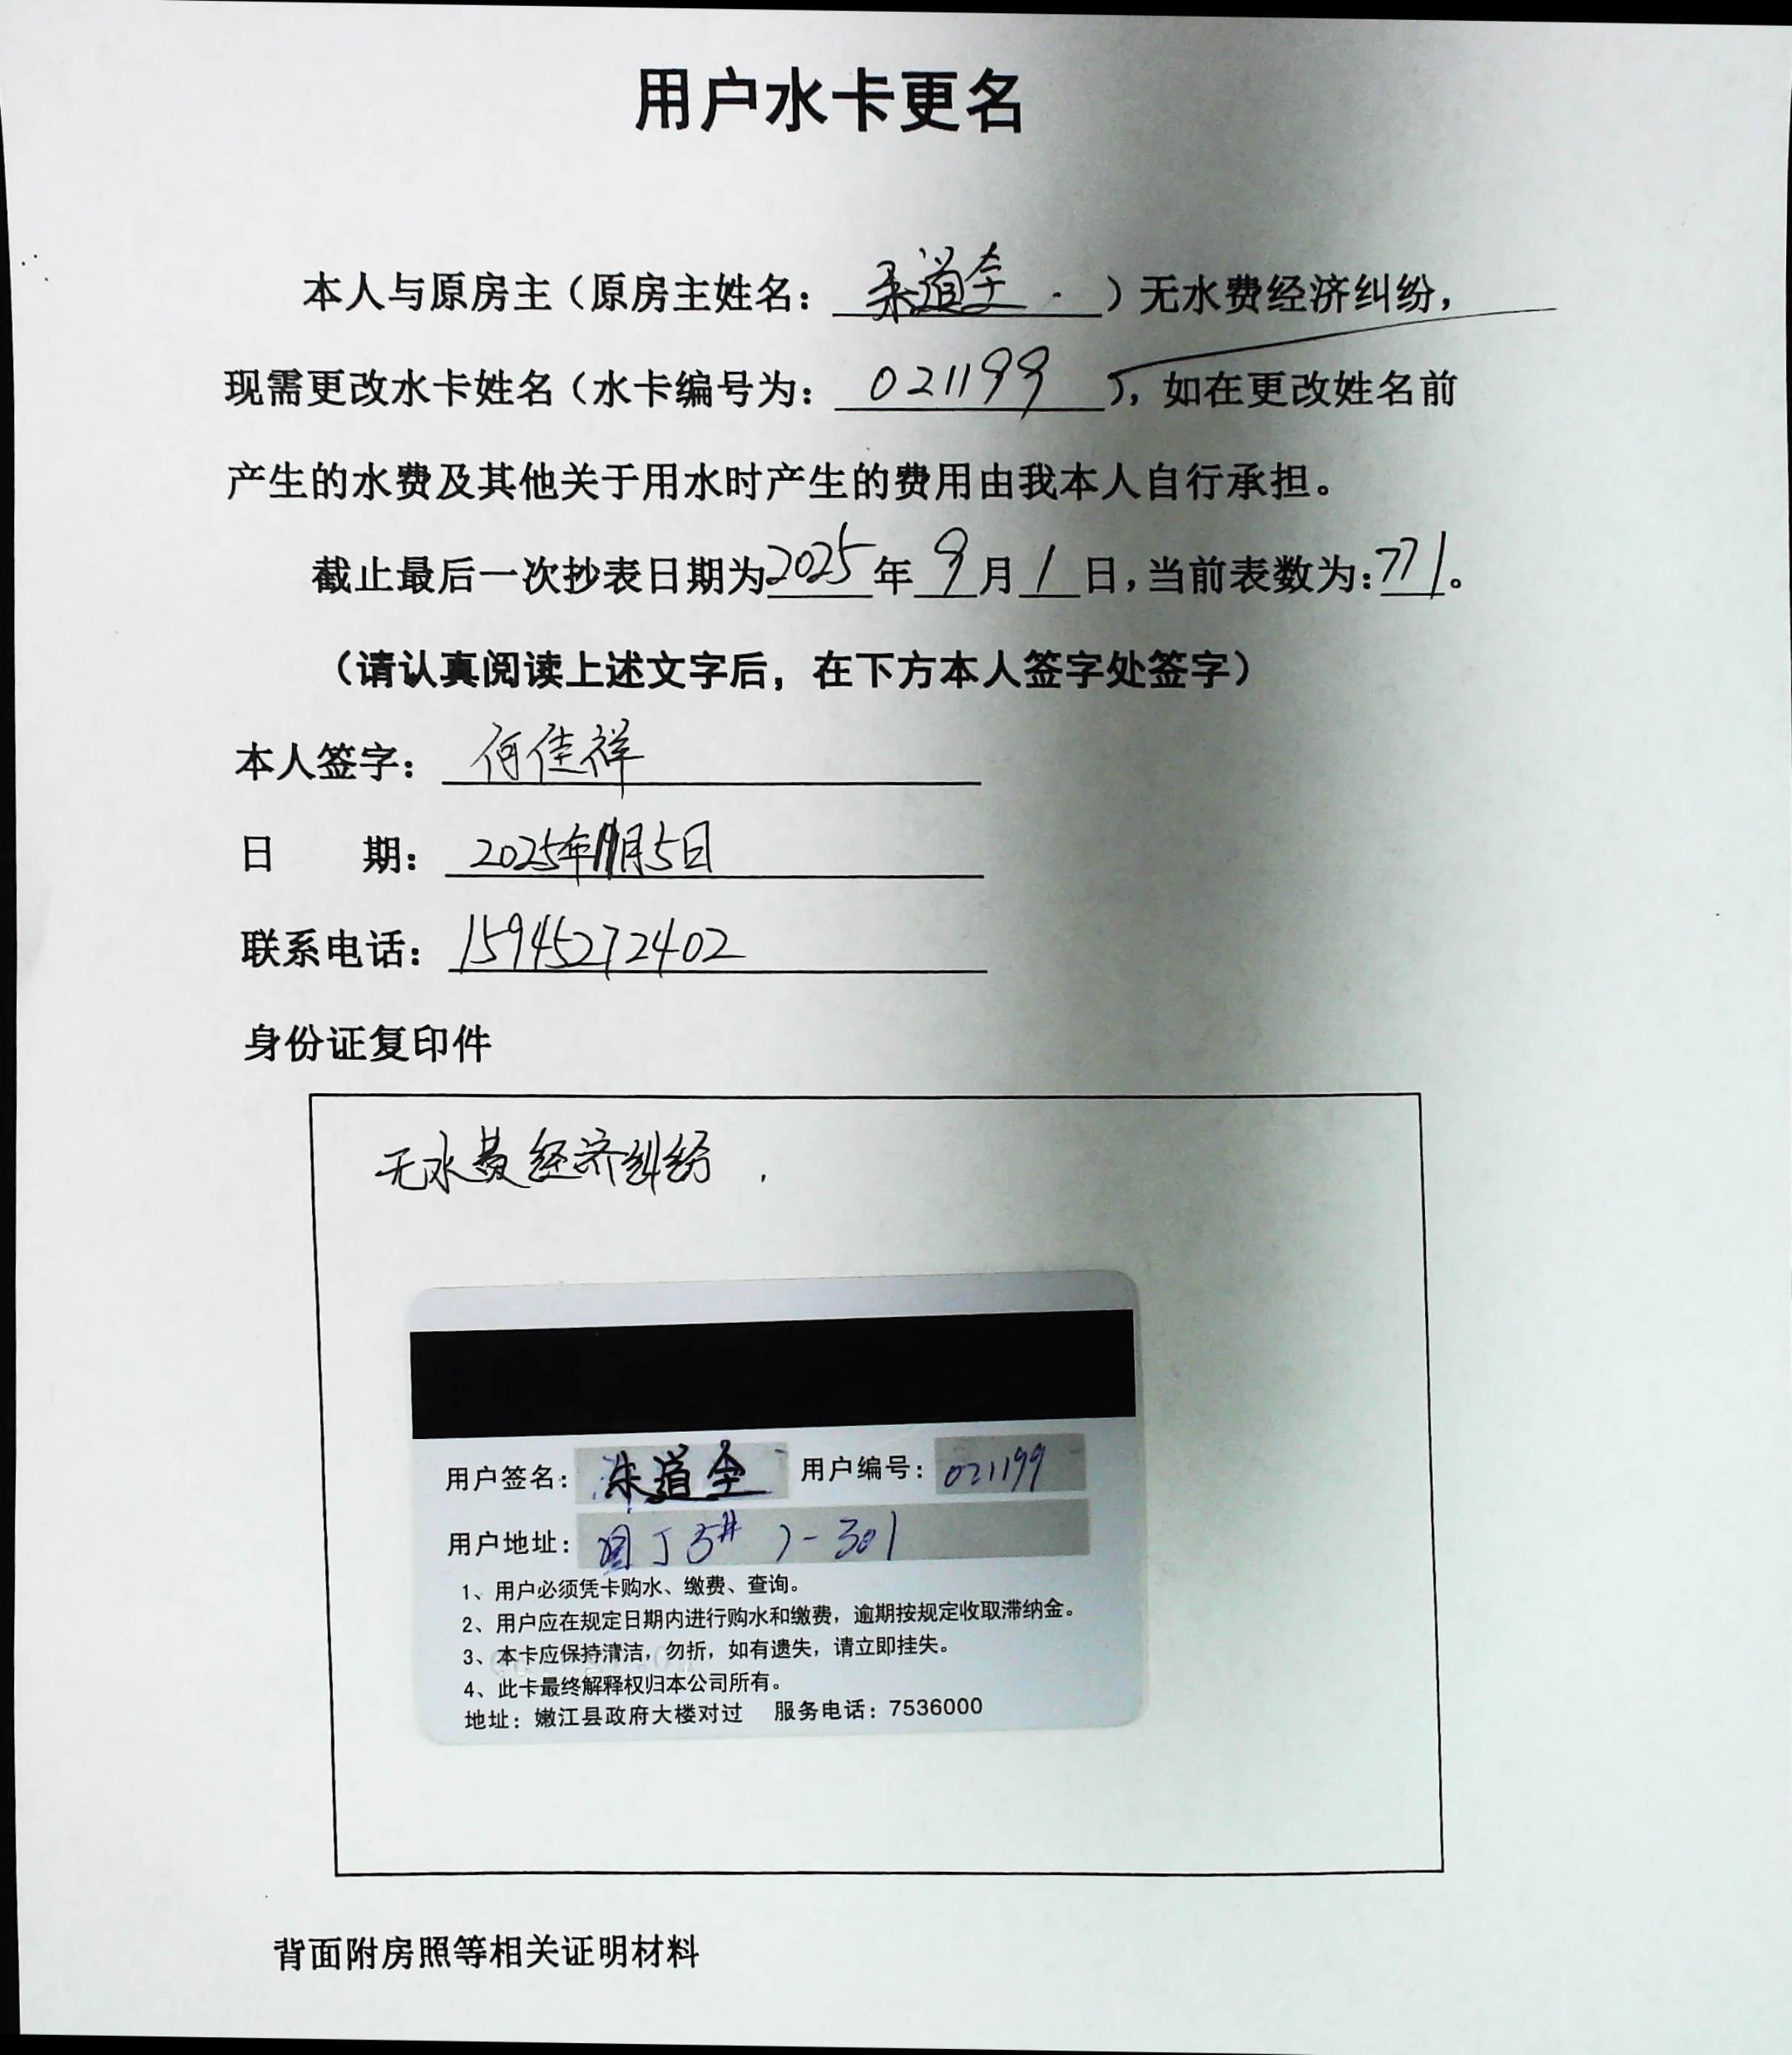 用户水卡更名
本人与原房主（原房主姓名：朱道全）无水费经济纠纷，
现需更改水卡姓名（水卡编号为：021199），如在更改姓名前
产生的水费及其他关于用水时产生的费用由我本人自行承担。
截止最后一次抄表日期为2025年9月1日，当前表数为：771。
（请认真阅读上述文字后，在下方本人签字处签字）
本人签字：何佳祥
日 期：2025年11月5日
联系电话：15945272402
身份证复印件
无水费经济纠纷
用户签名：朱道全 用户编号：021199
用户地址：园丁5# 7-301
1、用户必须凭卡购水、缴费、查询。
2、用户应在规定日期内进行购水和缴费，逾期按规定收取滞纳金。
3、本卡应保持清洁，勿折，如有遗失，请立即挂失。
4、此卡最终解释权归本公司所有。
地址：嫩江县政府大楼对过 服务电话：7536000
背面附房照等相关证明材料